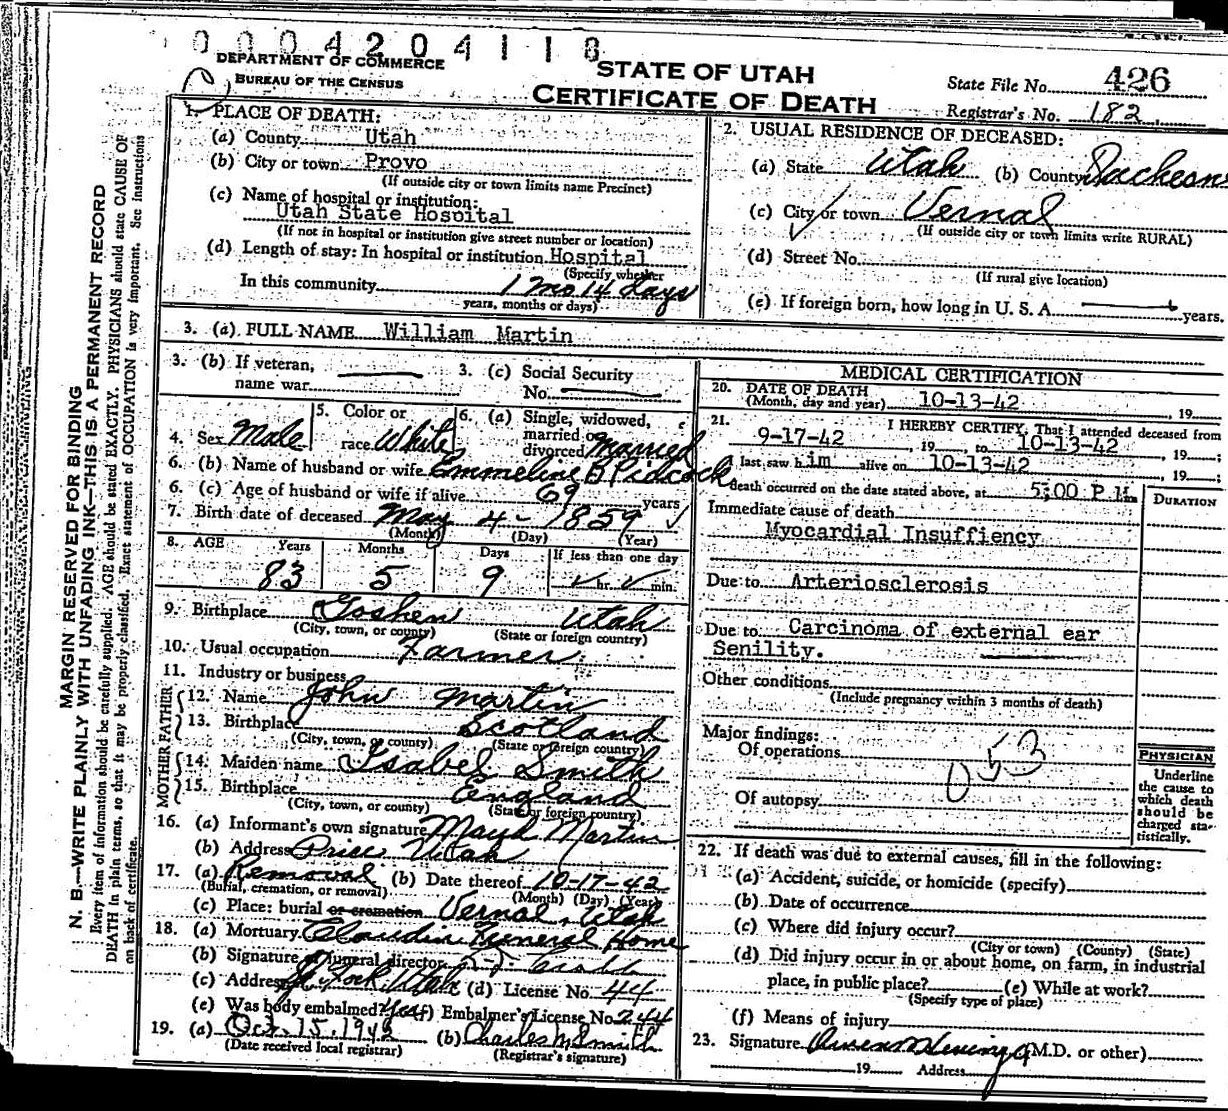 0004204118
DEPARTMENT OF COMMERCE
BUREAU OF THE CENSUS
STATE OF UTAH
CERTIFICATE OF DEATH
State File No. 426
Registrar's No. 182
MARGIN RESERVED FOR BINDING
N. B.—WRITE PLAINLY WITH UNFADING INK—THIS IS A PERMANENT RECORD
Every item of information should be carefully supplied. AGE should be stated EXACTLY. PHYSICIANS should state CAUSE OF
DEATH in plain terms, so that it may be properly classified. Exact statement of OCCUPATION is very important. See instructions
back of certificate.
1. PLACE OF DEATH:
(a) County Utah
(b) City or town Provo
(If outside city or town limits name Precinct)
(c) Name of hospital or institution:
Utah State Hospital
(If not in hospital or institution give street number or location)
(d) Length of stay: In hospital or institution Hospital
(Specify whether
In this community 1 mo 14 days
years, months or days)
2. USUAL RESIDENCE OF DECEASED:
(a) State Utah (b) County
(c) City or town Vernal
(If outside city or town limits write RURAL)
(d) Street No.
(If rural give location)
(e) If foreign born, how long in U. S. A. years.
3. (a) FULL NAME William Martin
3. (b) If veteran,
name war
3. (c) Social Security
No.
4. Sex Male
5. Color or
race White
6. (a) Single, widowed,
married or
divorced Married
6. (b) Name of husband or wife Emmeline B Pidcock
6. (c) Age of husband or wife if alive 69 years
7. Birth date of deceased May 4 - 1859
(Month) (Day) (Year)
8. AGE Years Months Days If less than one day
83 5 9 hr. min.
9. Birthplace Goshen Utah
(City, town, or county) (State or foreign country)
10. Usual occupation Farmer
11. Industry or business
FATHER
12. Name John Martin
13. Birthplace Scotland
(City, town, or county) (State or foreign country)
MOTHER
14. Maiden name Isabel Smith
15. Birthplace England
(City, town, or county) (State or foreign country)
16. (a) Informant's own signature Martin
(b) Address Price Utah
17. (a) Removal (b) Date thereof 10-17-42
(Burial, cremation, or removal) (Month) (Day) (Year)
(c) Place: burial or cremation Vernal, Utah
18. (a) Mortuary Funeral Home
(b) Signature of funeral director
(c) Address Utah (d) License No. 44
(e) Was body embalmed? Yes (f) Embalmer's License No. 244
19. (a) Oct. 15, 1942 (b) Charles M Smith
(Date received local registrar) (Registrar's signature)
MEDICAL CERTIFICATION
20. DATE OF DEATH
(Month, day and year) 10-13-42, 19
21. I HEREBY CERTIFY, That I attended deceased from
9-17-42, 19 to 10-13-42, 19;
last saw him alive on 10-13-42, 19;
death occurred on the date stated above, at 5:00 P.M.
DURATION
Immediate cause of death
Myocardial Insuffiency
Due to Arteriosclerosis
Due to Carcinoma of external ear
Senility.
Other conditions
(Include pregnancy within 3 months of death)
Major findings:
Of operations
053
Of autopsy
PHYSICIAN
Underline
the cause to
which death
should be
charged sta-
tistically.
22. If death was due to external causes, fill in the following:
(a) Accident, suicide, or homicide (specify)
(b) Date of occurrence
(c) Where did injury occur?
(City or town) (County) (State)
(d) Did injury occur in or about home, on farm, in industrial
place, in public place? (e) While at work?
(Specify type of place)
(f) Means of injury
23. Signature (M.D. or other)
19 Address